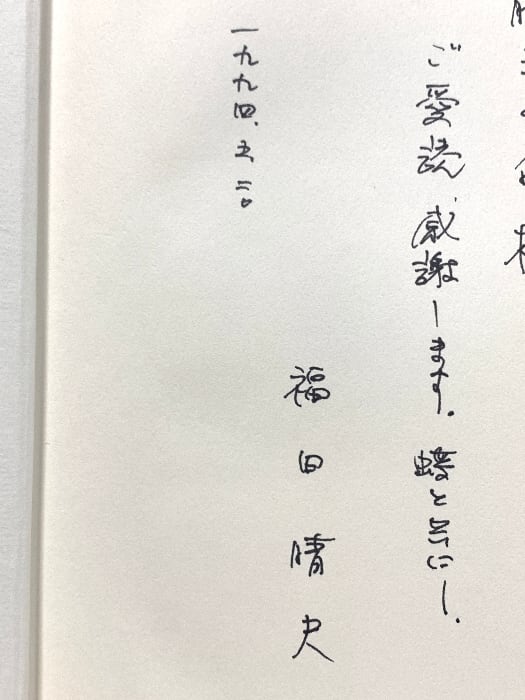 ご愛読、感謝します。蝶と共に！
福田晴夫
一九九四、五、二〇